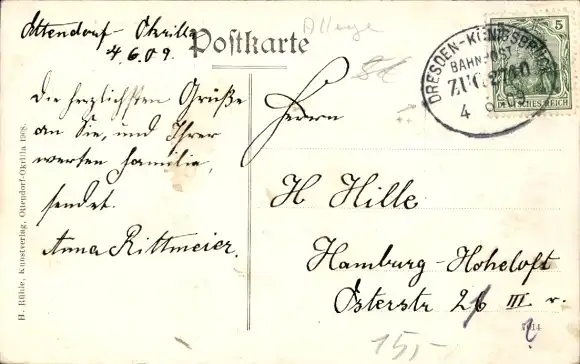 Ottendorf-Okrilla
4.6.09.
Postkarte
Die herzlichsten Grüße
an Sie, und Ihrer
werten Familie,
sendet.
Anna Rittmeier.
H. Rühle, Kunstverlag, Ottendorf-Okrilla 1908.
DRESDEN-KÖNIGSBRÜCK
BAHNPOST
ZUG
4 6 09
5
DEUTSCHES REICH
Herrn
H Hille
Hamburg-Hoheloft
Osterstr 26 III r.
15,-